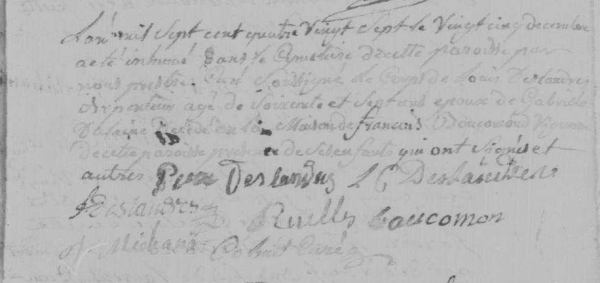 L'an mil sept cent quatre vingt sept le vingt cinq decembre
a eté inhumé dans le cymetiere de cette paroisse par
nous pretre soussigne le corps de Louis Deslandres
arpenteur agé de soixante et sept ans epoux de Gabrielle
decedé en la maison de francois Boucomon vigneron
de cette paroisse presence de ses enfants qui ont signés et
autres Pierre Deslandres L C Deslandres
Deslandres
Ruelle boucomon
Michau